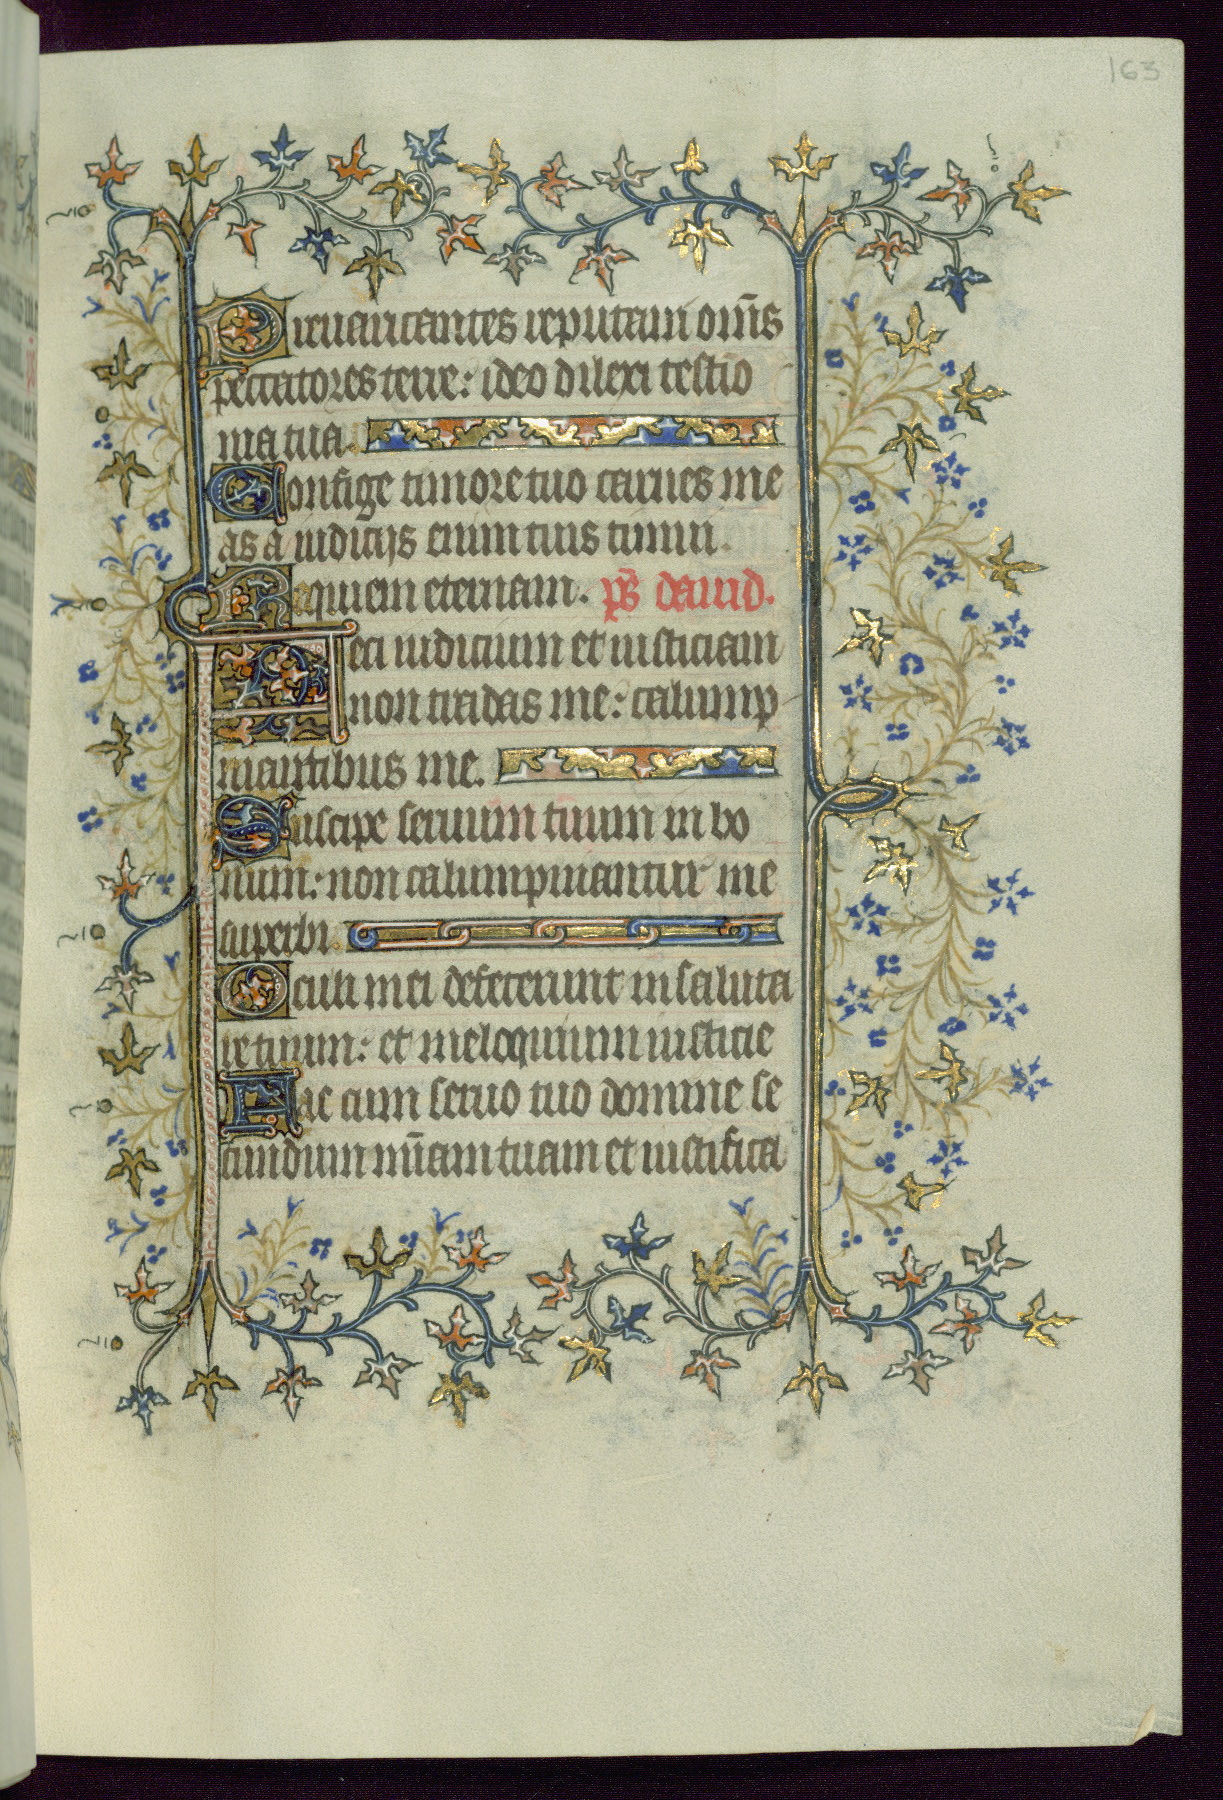 163
Preuaricantes reputaui om̅s
peccatores terre: ideo dilexi testio
nia tua.
Confige timore tuo carnes me
as a iudicijs enim tuis timui.
Requiem eternam. ps̅ dauid.
Feci iudicium et iusticiam
non tradas me: calump
niantibus me.
Suscipe seruum tuum in bo
num: non calumpniantur me
superbi.
Oculi mei defecerunt in saluta
re tuum: et in eloquium iusticie
Fac cum seruo tuo domine se
cundum mi̅am tuam et iustifica